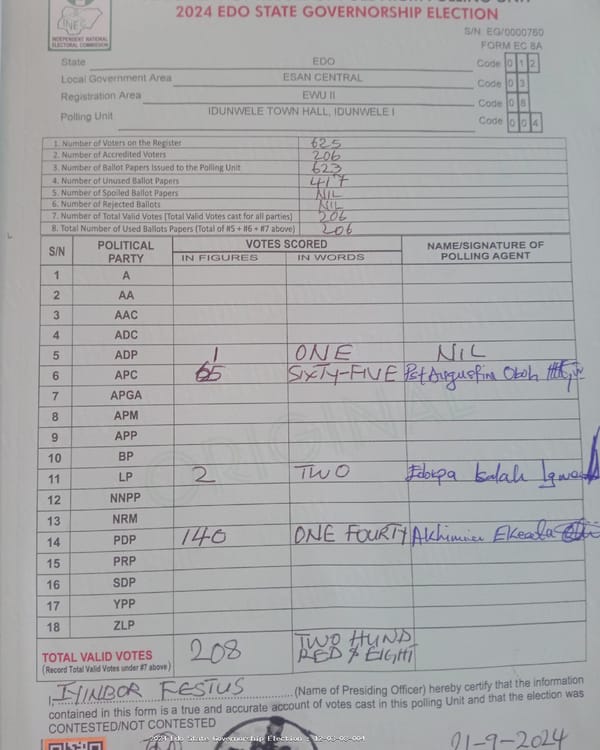 2024 EDO STATE GOVERNORSHIP ELECTION
INEC
INDEPENDENT NATIONAL
ELECTORAL COMMISSION
S/N EG/0000760
FORM EC 8A
State EDO Code 0 1 2
Local Government Area ESAN CENTRAL Code 0 3
Registration Area EWU II Code 0 8
Polling Unit IDUNWELE TOWN HALL, IDUNWELE I Code 0 0 4
1. Number of Voters on the Register 625
2. Number of Accredited Voters 206
3. Number of Ballot Papers Issued to the Polling Unit 623
4. Number of Unused Ballot Papers 417
5. Number of Spoiled Ballot Papers NIL
6. Number of Rejected Ballots NIL
7. Number of Total Valid Votes (Total Valid Votes cast for all parties) 206
8. Total Number of Used Ballots Papers (Total of #5 + #6 + #7 above) 206
S/N POLITICAL PARTY VOTES SCORED NAME/SIGNATURE OF POLLING AGENT
IN FIGURES IN WORDS
1 A
2 AA
3 AAC
4 ADC
5 ADP 1 ONE NIL
6 APC 65 SIXTY-FIVE Pst Augustine Oboh
7 APGA
8 APM
9 APP
10 BP
11 LP 2 TWO
12 NNPP
13 NRM
14 PDP 140 ONE FOURTY
15 PRP
16 SDP
17 YPP
18 ZLP
ORIGINAL
TOTAL VALID VOTES 208 TWO HUND
(Record Total Valid Votes under #7 above) RED & EIGHT
I, IYINBOR FESTUS (Name of Presiding Officer) hereby certify that the information
contained in this form is a true and accurate account of votes cast in this polling Unit and that the election was
CONTESTED/NOT CONTESTED
2024 Edo State Governorship Election : 12-03-08-004
21-9-2024